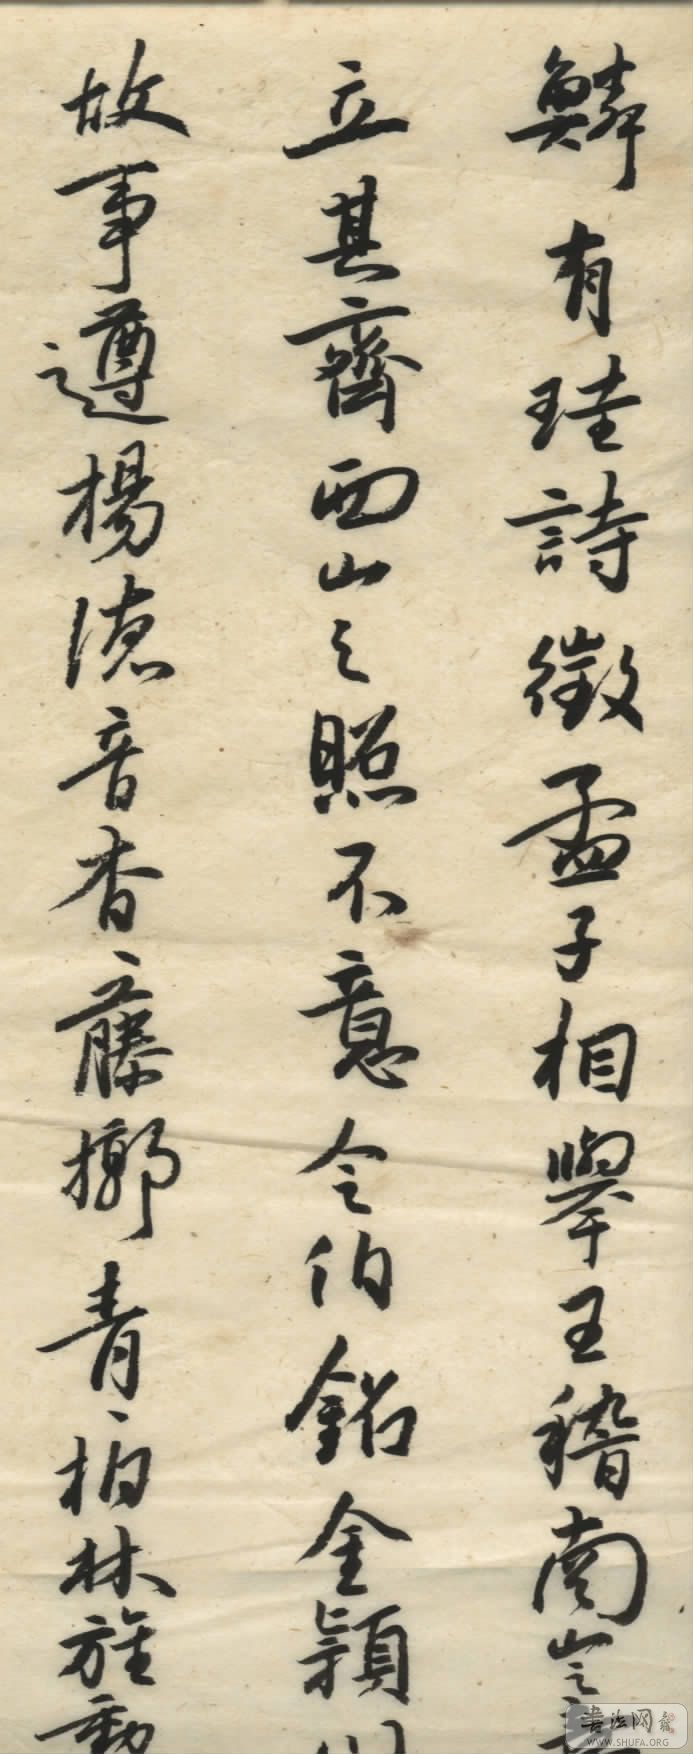 有珪詩徵孟子相舉王稽南
立其齊西山之照不意令伯銘金穎川
故事遵楊德音杳藤掷青柏林旌動
書法网
WWW.SHUFA.ORG